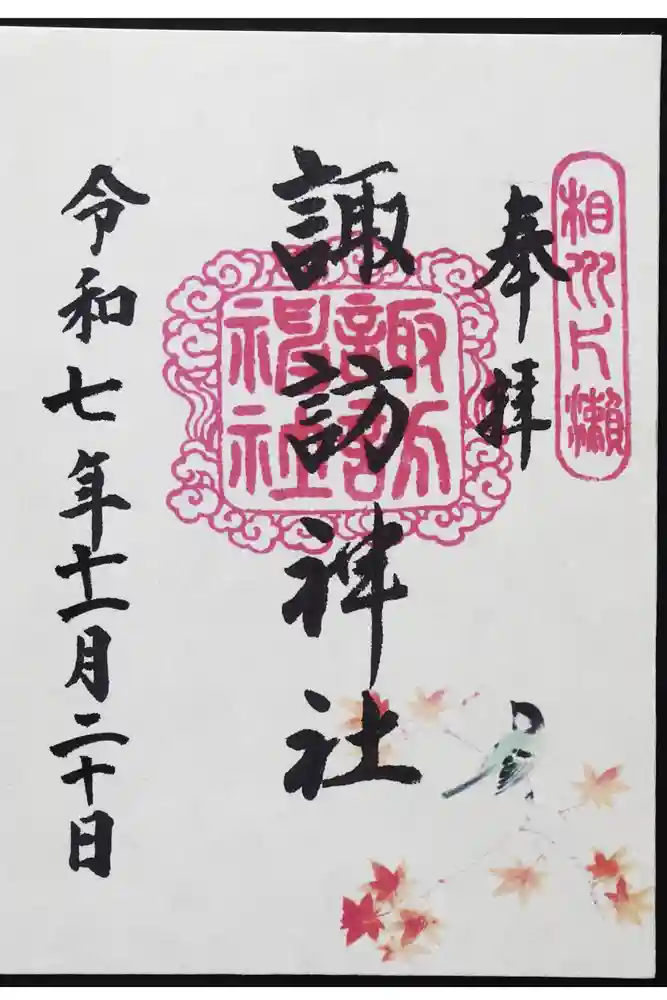 相州片瀬
奉拝
諏訪神社
諏訪神社
令和七年十一月二十日